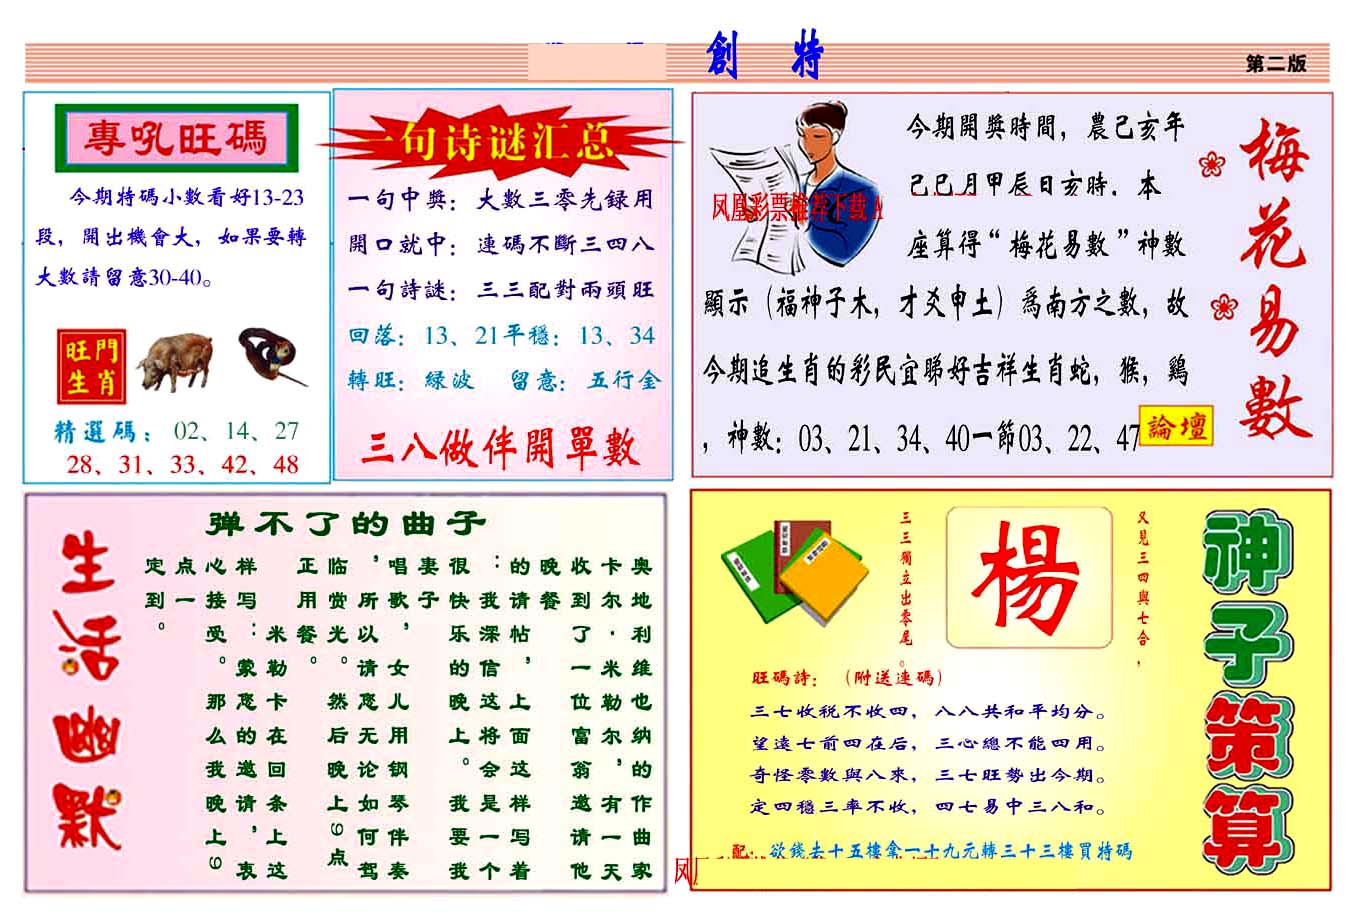 創 特
第二版
專吼旺碼
今期特碼小數看好13-23
段，開出機會大，如果要轉
大數請留意30-40。
旺門
生肖
精選碼：02、14、27
28、31、33、42、48
一句诗谜汇总
一句中獎：大數三零先録用
開口就中：連碼不斷三四八
一句詩謎：三三配對兩頭旺
回落：13、21平穩：13、34
轉旺：緑波 留意：五行金
三八做伴開單數
今期開獎時間，農己亥年
己巳月甲辰日亥時．本
凤凰彩票推荐下载A
座算得“梅花易數”神數
顯示（福神子木，才爻申土）爲南方之數，故
今期追生肖的彩民宜睇好吉祥生肖蛇，猴，鷄
，神數：03、21、34、40一節03、22、47
論壇
梅花易數
生活幽默
弹不了的曲子
奥地利维也纳的作曲家
卡尔·米勒尔，有一天
收到了一位富翁邀请他
晚餐
的请帖，上面这样写着
：我深信这将会是一个
很快乐的晚上。我要我
妻子
唱歌，女儿用钢琴伴奏
，所以请您无论如何驾
临赏光。然后晚上9点
正用餐。
米勒卡在回条上这
样写：蒙您的邀请，衷
心接受。那么我晚上9
点一
定到。
神子策算
又見三四與七合，
楊
三三獨立出零尾。
旺碼詩：（附送連碼）
三七收税不收四，八八共和平均分。
望遠七前四在后，三心總不能四用。
奇怪零數與八來，三七旺勢出今期。
定四穩三率不收，四七易中三八和。
配：欲錢去十五樓拿一十九元轉三十三樓買特碼